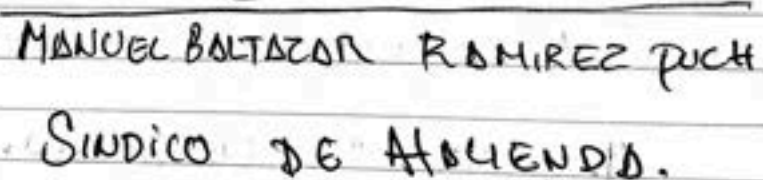 MANUEL BALTAZAR RAMIREZ PUCH
SINDICO DE HACIENDA.